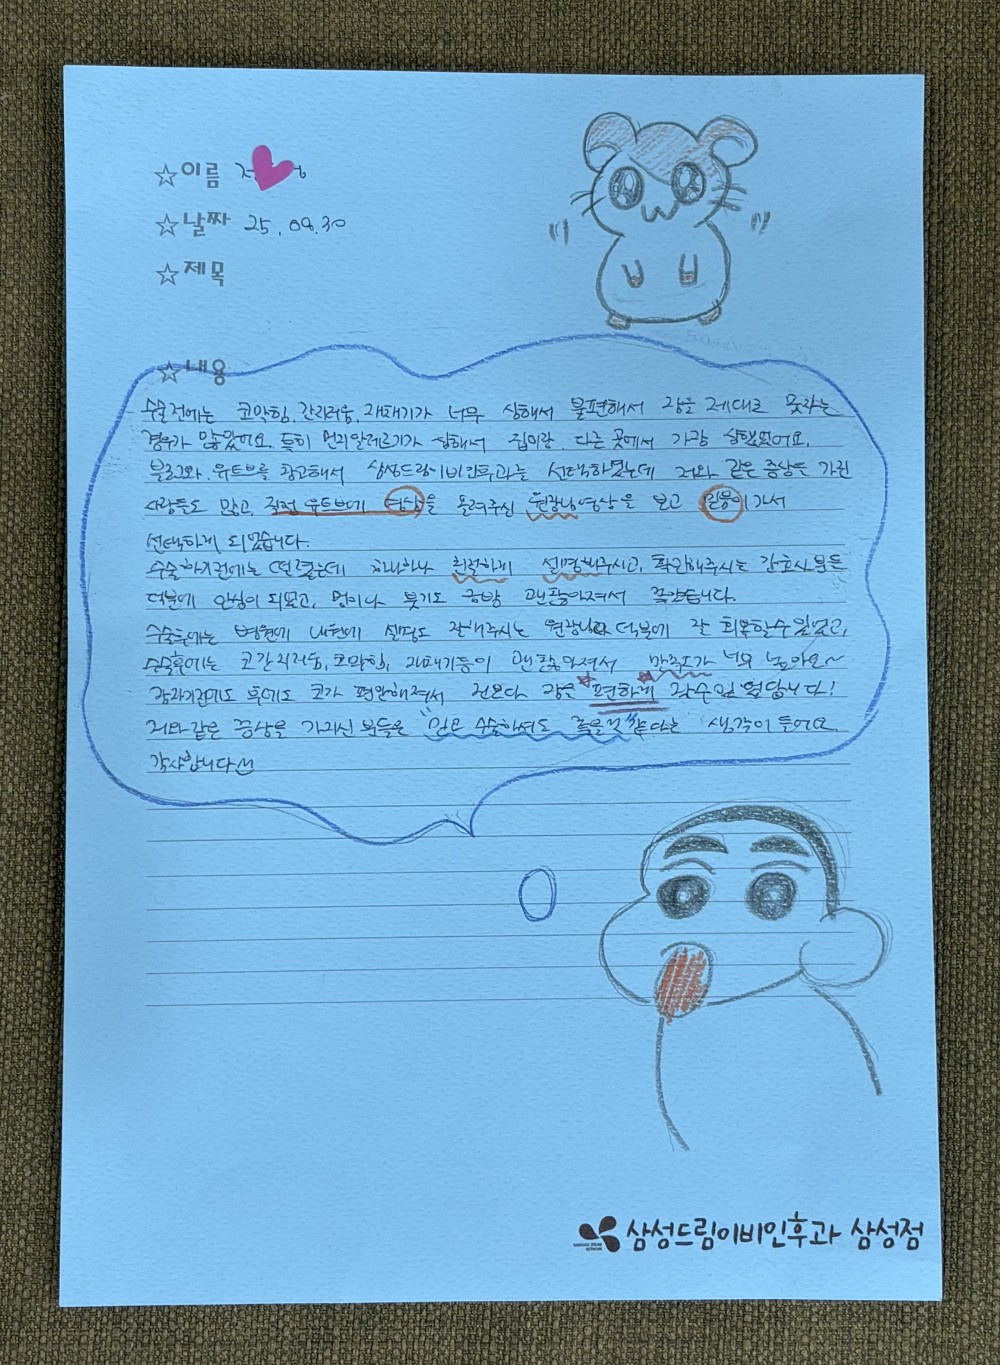 ☆이름
☆날짜 25.09.30
☆제목
☆내용
수술전에는 코막힘, 간지러움, 재채기가 너무 심해서 불편해서 잠을 제대로 못자는
경우가 많았어요. 특히 먼지알레르기가 심해서 집이랑 다른 곳에서 가장 심했었어요.
블로그와 유튜브를 광고해서 삼성드림이비인후과를 선택하였는데 저와 같은 증상을 가진
사람들도 많고, 직접 유튜브에 영상을 올려주신 원장님영상을 보고 믿음이가서
선택하게 되었습니다.
수술하기전에는 떨렸는데 하나하나 친절하게 설명해주시고, 확인해주시는 간호사분들
덕분에 안심이 되었고, 멍이나 붓기도 금방 괜찮아져서 좋았습니다.
수술후에는 병원에 내원에 설명도 잘해주시는 원장님 덕분에 잘 회복할수 있었고,
수술후에는 코간지러움, 코막힘, 재채기등이 괜찮아져서 만족도가 너무 높아요~
잠자기전에도 후에도 코가 편안해져서 전보다 잠을 편하게 잘수있었답니다!
저와같은 증상을 가지신 분들은 "믿고 수술하셔도 좋을것"같다는 생각이 들어요.
감사합니다
삼성드림이비인후과 삼성점